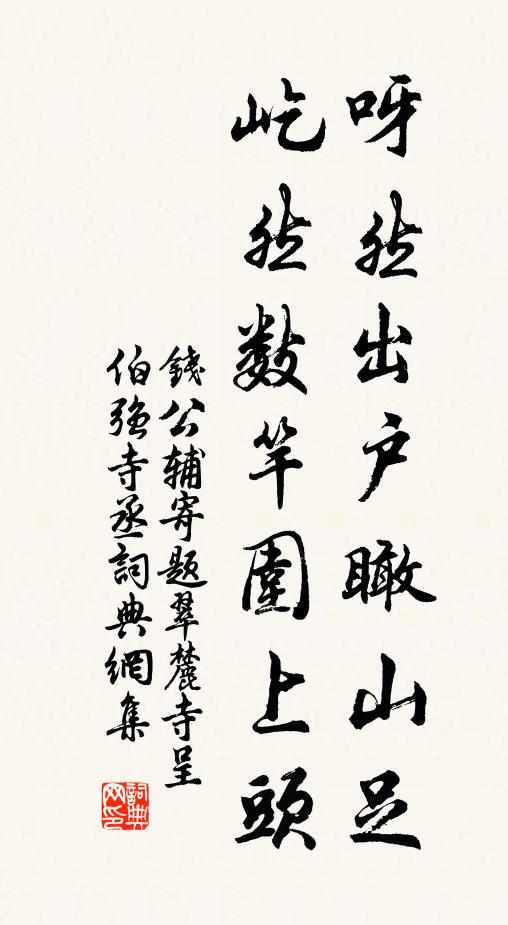 呀然出户瞰山足
屹然數竿圍上頭
錢公輔寄題翠麓寺呈
伯強寺丞詞典網集
詞典网印